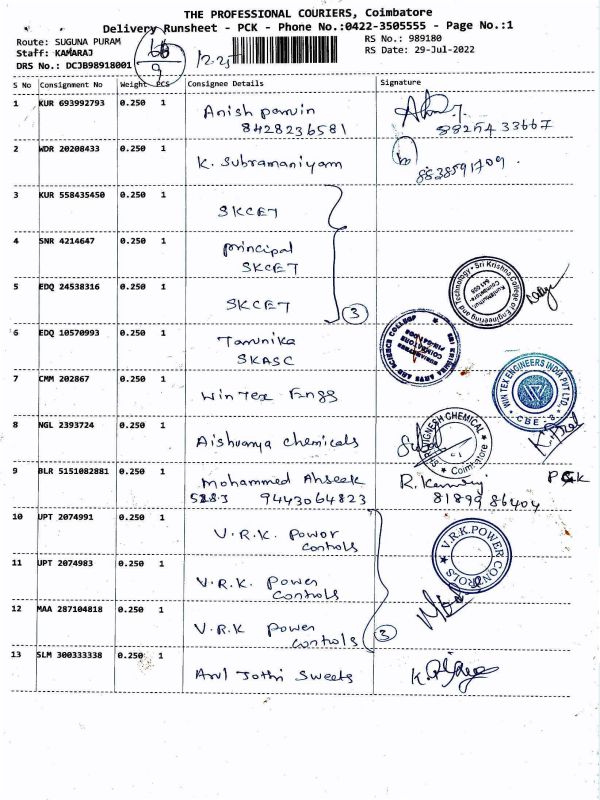 THE PROFESSIONAL COURIERS, Coimbatore
Delivery Runsheet - PCK - Phone No.:0422-3505555 - Page No.:1
Route: SUGUNA PURAM
RS No.: 989180
Staff: KAMARAJ
RS Date: 29-Jul-2022
DRS No.: DCJB98918001
9
S No Consignment No Weight PCS Consignee Details Signature
1 KUR 693992793 0.250 1 Anish parvin
8428236581
2 WDR 20208433 0.250 1 K. Subramaniyam
8838591709.
3 KUR 558435450 0.250 1 SKCET
4 SNR 4214647 0.250 1 principal
SKCET
5 EDQ 24538316 0.250 1 SKCET
3
Sri Krishna College of Engineering and Technology
Kuniamuthur
Coimbatore
641 008
6 EDQ 10570993 0.250 1 Tarunika
SKASC
SRI KRISHNA ARTS AND SCIENCE COLLEGE
7 CMM 202867 0.250 1 WinTex Engs
WIN TEX ENGINEERS INDIA PVT LTD.
CBE - 8
8 NGL 2393724 0.250 1 Aishwarya chemicals
VIGNESH CHEMICAL
Coimbatore
9 BLR 5151082881 0.250 1 Mohammed Ahseek
9443064823
81899 86404
10 UPT 2074991 0.250 1 V.R.K. Power
controls
11 UPT 2074983 0.250 1 V.R.K. Power
controls
V.R.K.POWER CONTROLS
12 MAA 287104818 0.250 1 V.R.K Power
controls
3
13 SLM 300333338 0.250 1 Arul Jothi Sweets